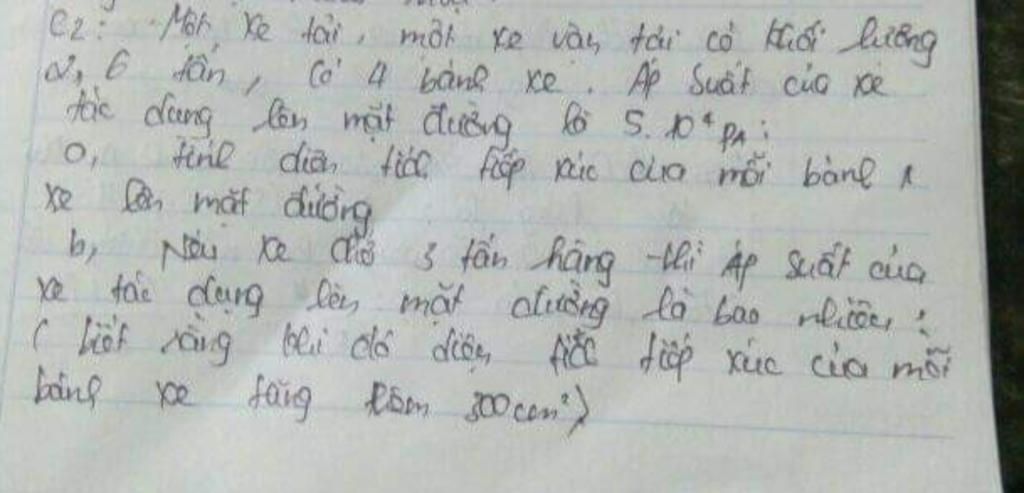 C2: Một xe tải, một xe vận tải có khối lượng
2, 6 tấn, có 4 bánh xe. Áp suất của xe
tác dụng lên mặt đường là 5. 10⁴ pa:
a, tính diện tích tiếp xúc của mỗi bánh
xe lên mặt đường
b, Nếu xe chở 3 tấn hàng thì Áp suất của
xe tác dụng lên mặt đường là bao nhiêu?
( biết rằng khi đó diện tích tiếp xúc của mỗi
bánh xe tăng thêm 300 cm²)